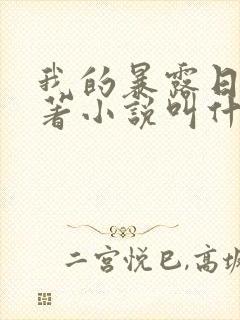 我的暴露日
著小説叫什
二宫悦巳,高坂